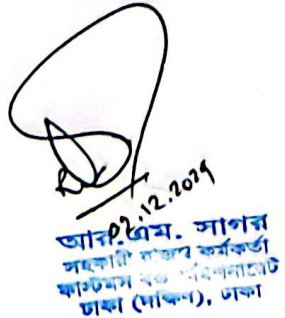 02.12.2029
আর.এম. সাগর
সহকারী রাজস্ব কর্মকর্তা
কাস্টমস বন্ড কমিশনারেট
ঢাকা (দক্ষিণ), ঢাকা